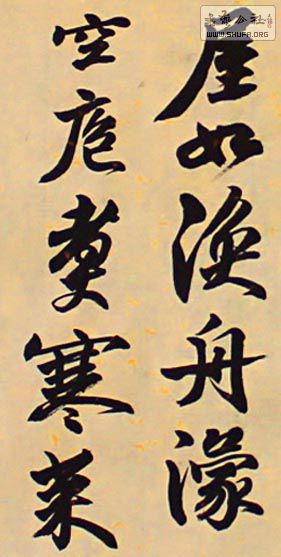 公社
WWW.SHUFA.ORG
屋如漁舟濛
空庖煮寒菜